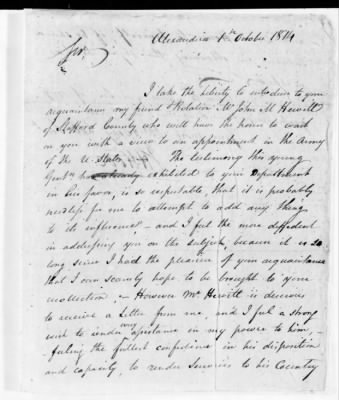 Alexandria 1st October 1814
Sir,
I take the liberty to introduce to your
acquaintance my friend & Relation Mr John M Hewitt
of Stafford County who will have the honor to wait
on you with a view to an appointment in the Army
of the U. States. The testimony this young
Gentn has already exhibited to your Department
in his favor, is so respectable, that it is probably
needless for me to attempt to add any thing
to its influence - and I feel the more diffident
in addressing you on the subject, because it is so
long since I had the pleasure of your acquaintance
that I can scarcely hope to be brought to your
recollection - However Mr Hewitt is desirous
to receive a Letter from me, and I feel a strong
wish to render any assistance in my power to him, -
feeling the fullest confidence in his disposition
and capacity to render Services to his Country